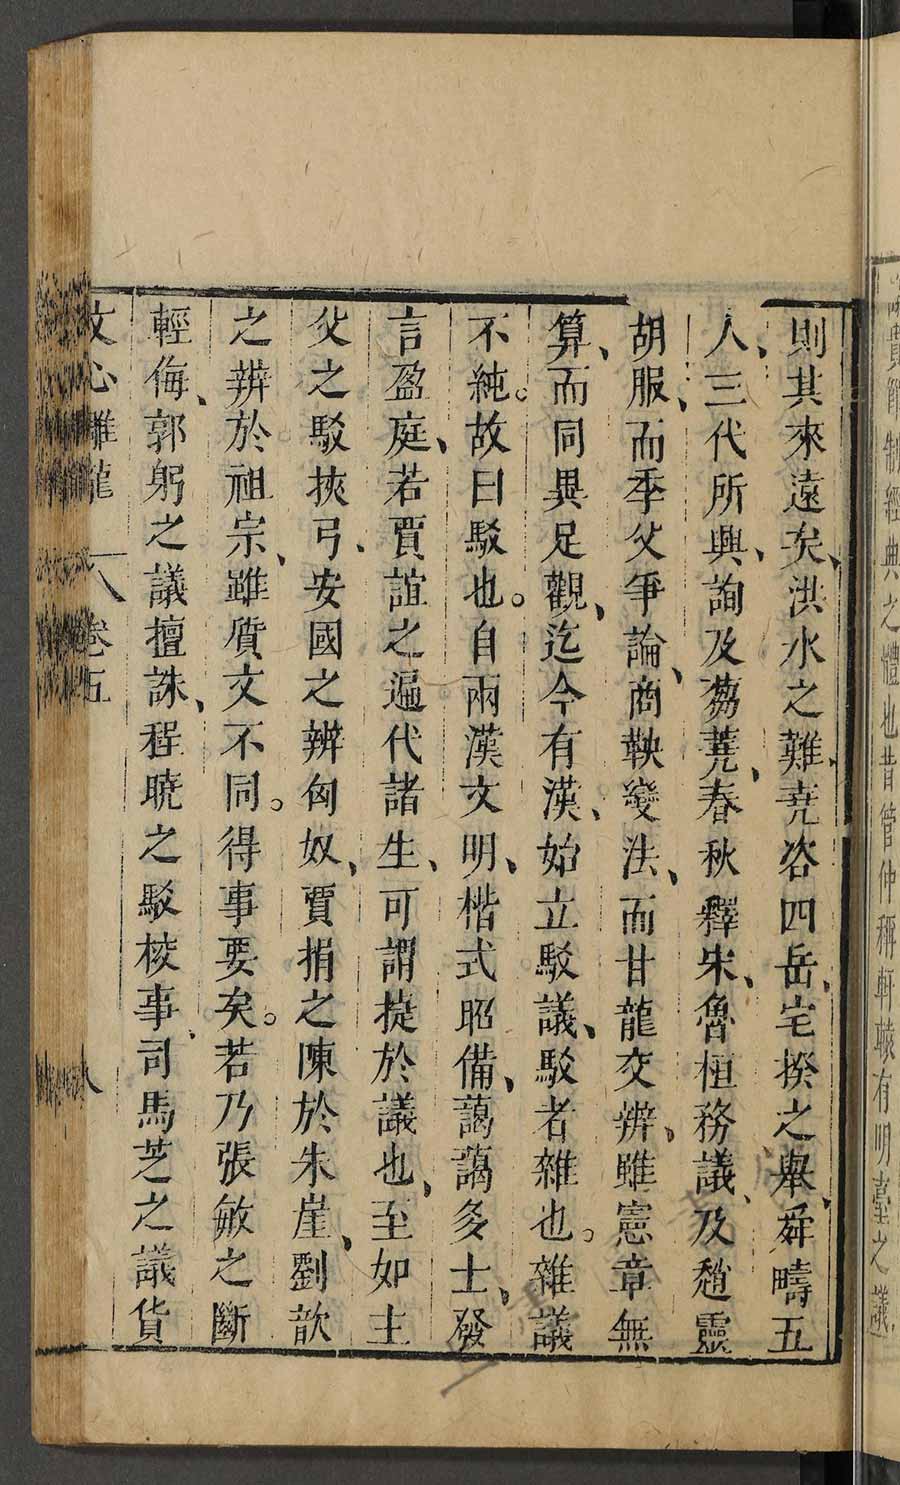 議貴節制經典之體也昔管仲稱軒轅有明臺之議
則其來遠矣、洪水之難、堯咨四岳、宅揆之舉、舜疇五
人、三代所興、詢及蒭蕘、春秋釋宋、魯桓務議、及趙靈
胡服、而季父爭論、商鞅變法、而甘龍交辨、雖憲章無
算、而同異足觀、迄今有漢、始立駁議、駁者雜也。雜議
不純。故曰駁也。自兩漢文明、楷式昭備、藹藹多士、發
言盈庭、若賈誼之遍代諸生、可謂捷於議也、至如主
父之駁挾弓、安國之辨匈奴、賈捐之陳於朱崖、劉歆
之辨於祖宗、雖質文不同。得事要矣。若乃張敏之斷
輕侮、郭躬之議擅誅、程曉之駁校事、司馬芝之議貨
文心雕龍 卷五 八